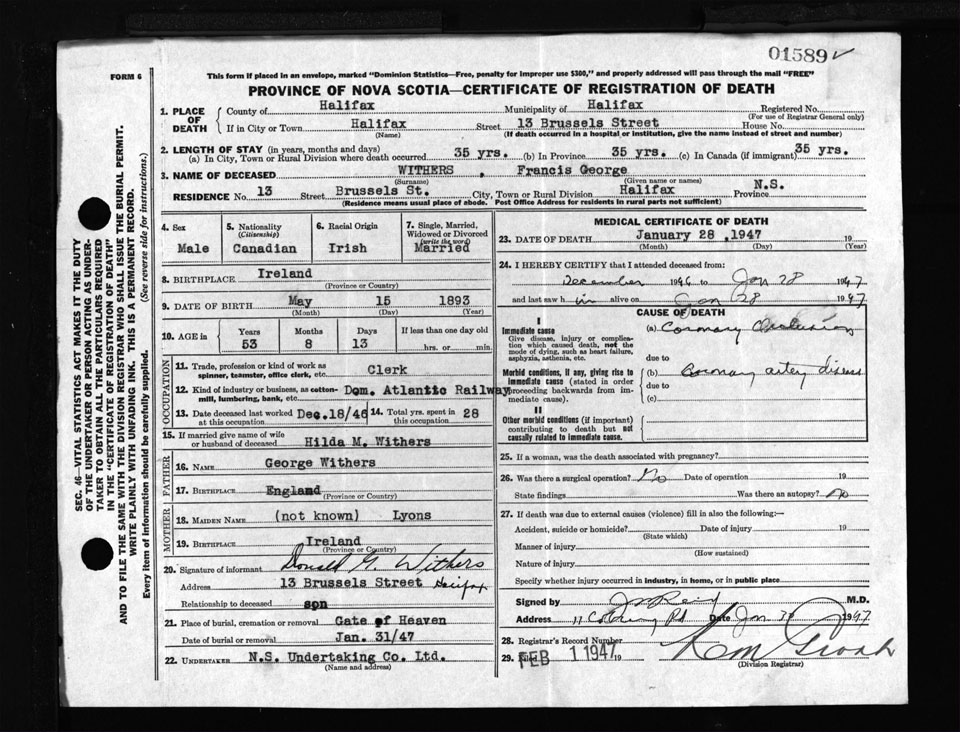 01589 ✓
FORM 6
This form if placed in an envelope, marked "Dominion Statistics—Free, penalty for improper use $300," and properly addressed will pass through the mail "FREE"
PROVINCE OF NOVA SCOTIA—CERTIFICATE OF REGISTRATION OF DEATH
SEC. 46—VITAL STATISTICS ACT MAKES IT THE DUTY
OF THE UNDERTAKER OR PERSON ACTING AS UNDER-
TAKER TO OBTAIN ALL THE PARTICULARS REQUIRED
IN THE "CERTIFICATE OF REGISTRATION OF DEATH"
AND TO FILE THE SAME WITH THE DIVISION REGISTRAR WHO SHALL ISSUE THE BURIAL PERMIT.
WRITE PLAINLY WITH UNFADING INK. THIS IS A PERMANENT RECORD.
Every item of information should be carefully supplied. (See reverse side for instructions.)
1. PLACE OF DEATH County of Halifax Municipality of Halifax Registered No.
(For use of Registrar General only)
If in City or Town Halifax Street 13 Brussels Street House No.
(Name) (If death occurred in a hospital or institution, give the name instead of street and number)
2. LENGTH OF STAY (in years, months and days)
(a) In City, Town or Rural Division where death occurred 35 yrs. (b) In Province 35 yrs. (c) In Canada (if immigrant) 35 yrs.
3. NAME OF DECEASED WITHERS , Francis George
(Surname) (Given name or names)
RESIDENCE NO 13 Street Brussels St. City, Town or Rural Division Halifax Province N.S.
(Residence means usual place of abode. Post Office Address for residents in rural parts not sufficient)
4. Sex Male
5. Nationality (Citizenship) Canadian
6. Racial Origin Irish
7. Single, Married, Widowed or Divorced (write the word) Married
8. BIRTHPLACE Ireland
(Province or Country)
9. DATE OF BIRTH May 15 1893
(Month) (Day) (Year)
10. AGE in Years 53 Months 8 Days 13 If less than one day old hrs. or min.
OCCUPATION
11. Trade, profession or kind of work as spinner, teamster, office clerk, etc. Clerk
12. Kind of industry or business, as cotton-mill, lumbering, bank, etc. Dom. Atlantic Railway
13. Date deceased last worked at this occupation Dec.18/46
14. Total yrs. spent in this occupation 28
15. If married give name of wife or husband of deceased Hilda M. Withers
FATHER
16. NAME George Withers
17. BIRTHPLACE England
(Province or Country)
MOTHER
18. MAIDEN NAME (not known) Lyons
19. BIRTHPLACE Ireland
(Province or Country)
20. Signature of informant Donald G. Withers
Address 13 Brussels Street Halifax
Relationship to deceased son
21. Place of burial, cremation or removal Gate of Heaven
Date of burial or removal Jan. 31/47
22. UNDERTAKER N.S. Undertaking Co. Ltd.
(Name and address)
MEDICAL CERTIFICATE OF DEATH
23. DATE OF DEATH January 28 ,1947 19
(Month) (Day) (Year)
24. I HEREBY CERTIFY that I attended deceased from:
December 1946 to Jan 28 1947
and last saw him alive on Jan 28 1947
CAUSE OF DEATH
I
Immediate cause
Give disease, injury or complication which caused death, not the mode of dying, such as heart failure, asphyxia, asthenia, etc.
(a) Coronary Occlusion
due to
Morbid conditions, if any, giving rise to immediate cause (stated in order proceeding backwards from immediate cause).
(b) Coronary artery disease
due to
(c)
II
Other morbid conditions (if important) contributing to death but not causally related to immediate cause.
25. If a woman, was the death associated with pregnancy?
26. Was there a surgical operation? No Date of operation 19
State findings Was there an autopsy? No
27. If death was due to external causes (violence) fill in also the following:—
Accident, suicide or homicide? Date of injury 19
(State which)
Manner of injury
(How sustained)
Nature of injury
Specify whether injury occurred in industry, in home, or in public place
Signed by M.D.
Address Date Jan 30 1947
28. Registrar's Record Number
29. Filed FEB 1 1947 19
(Division Registrar)